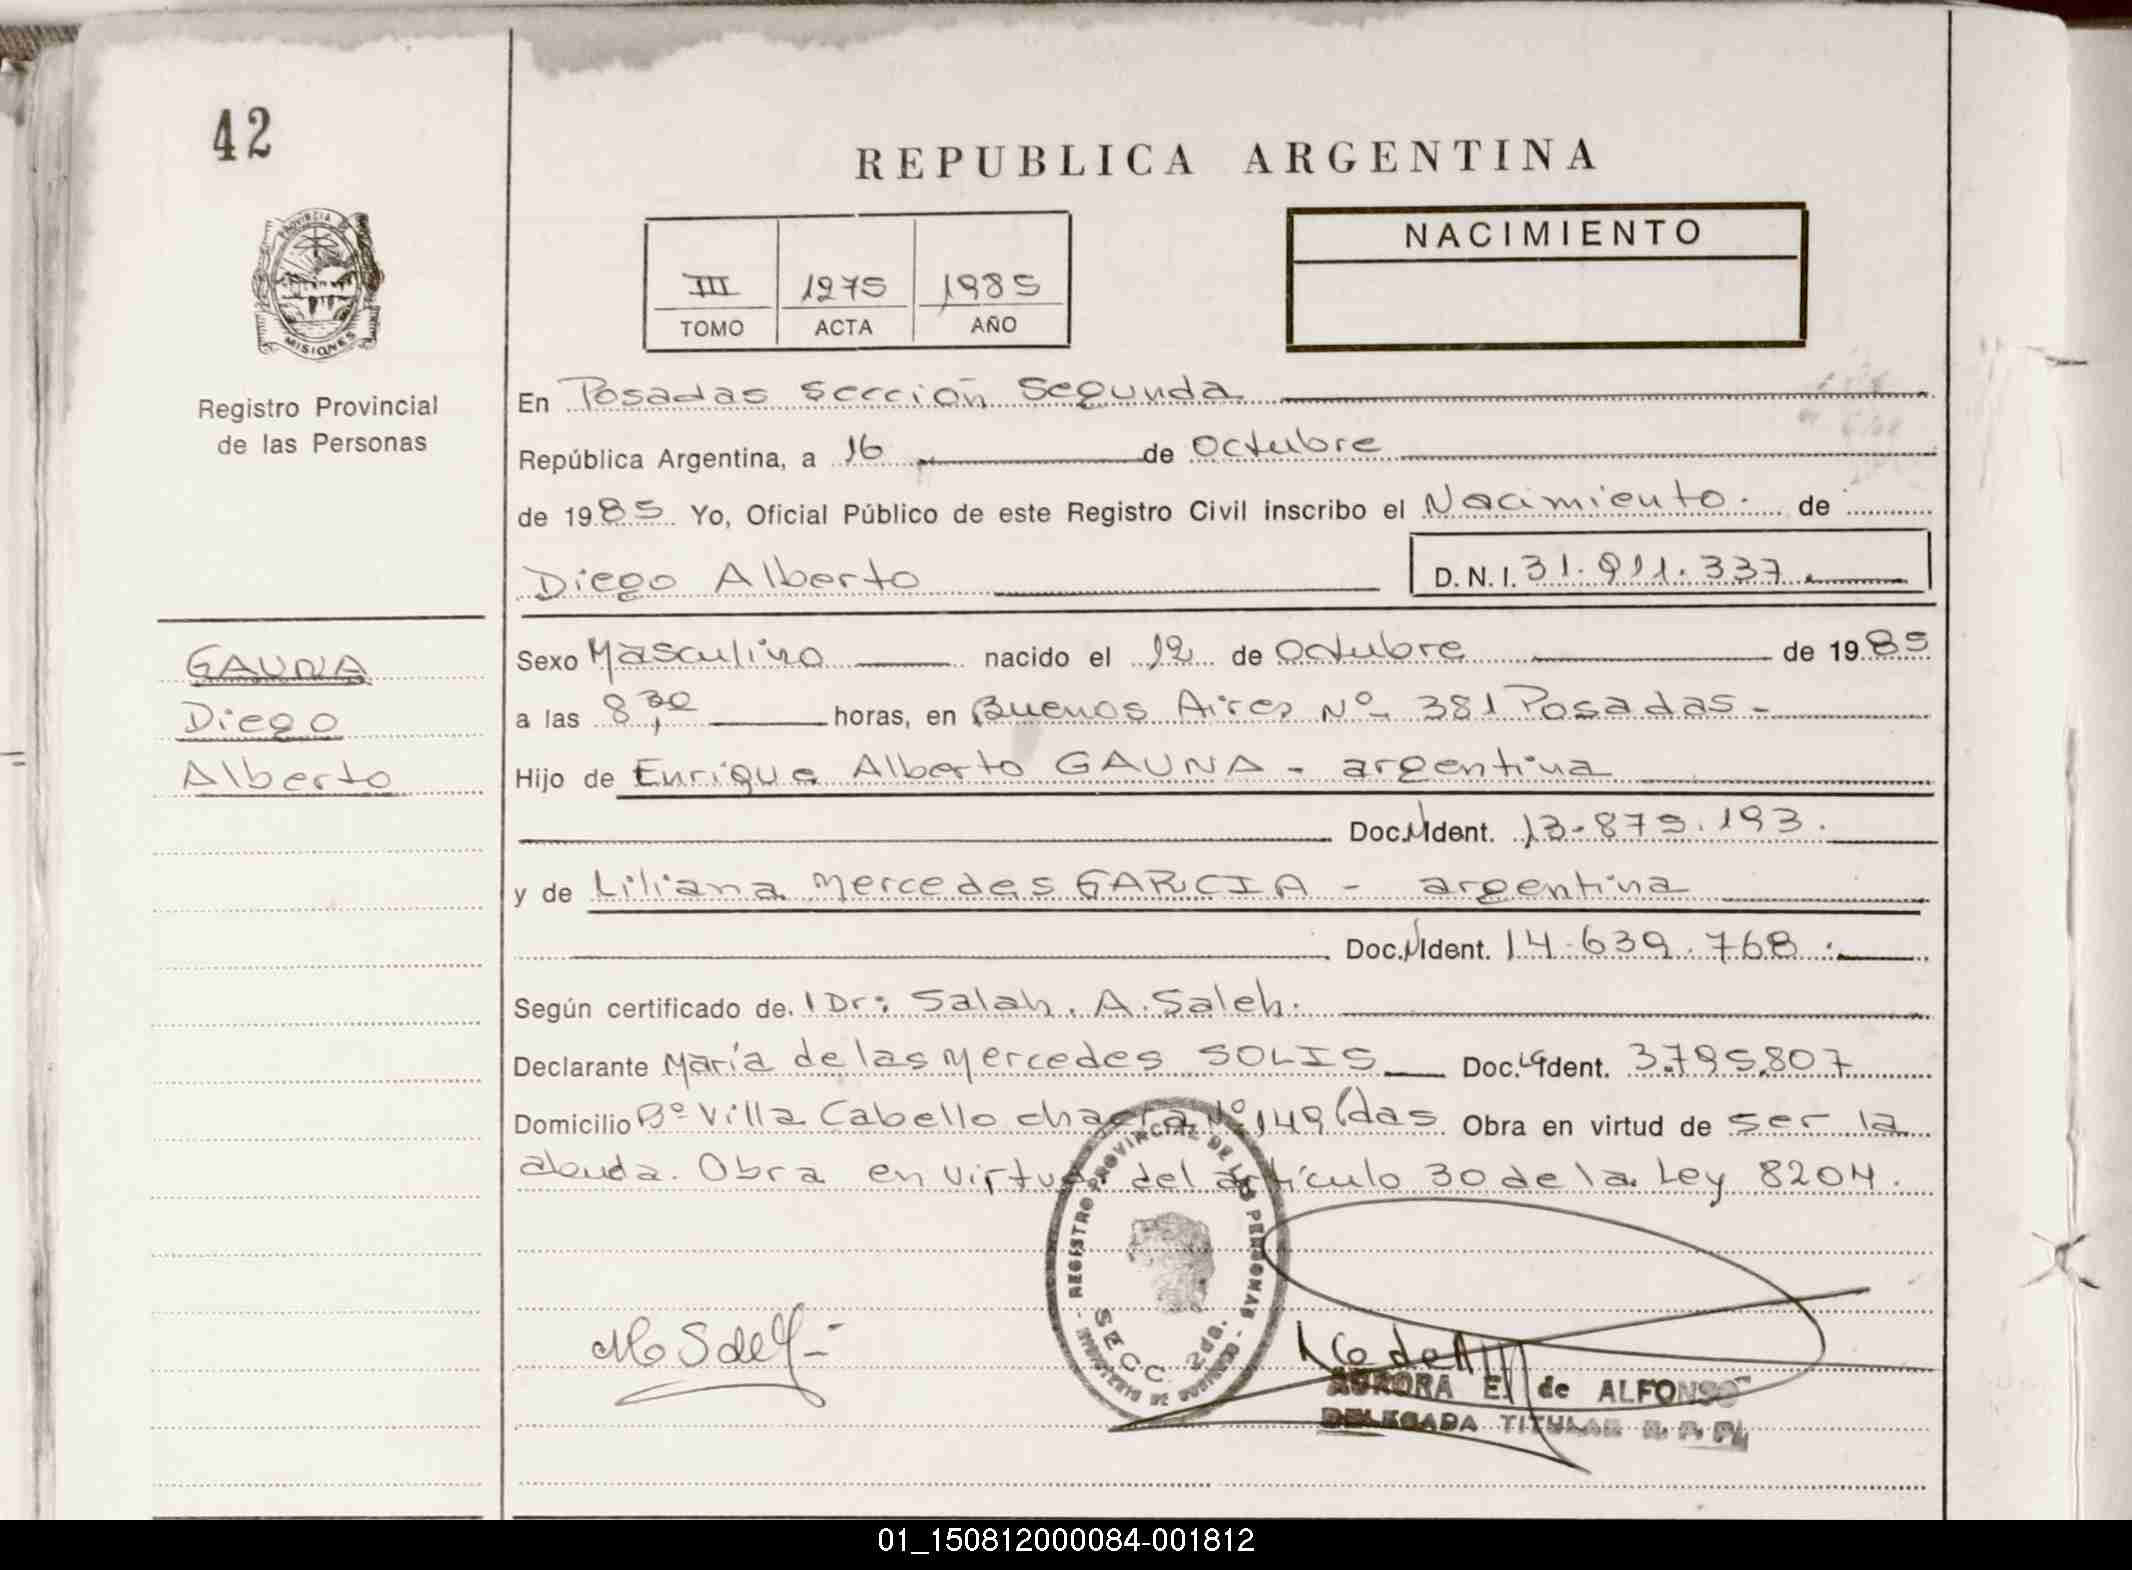 42
REPUBLICA ARGENTINA
PROVINCIA DE
MISIONES
Registro Provincial
de las Personas
III 1275 1985
TOMO ACTA AÑO
NACIMIENTO
En Posadas Sección Segunda
República Argentina, a 16 de Octubre
de 1985 Yo, Oficial Público de este Registro Civil inscribo el Nacimiento. de
Diego Alberto D. N. I. 31.911.337.
GAUNA
Diego
Alberto
Sexo Masculino nacido el 12 de Octubre de 1985
a las 8,30 horas, en Buenos Aires Nº 381 Posadas -
Hijo de Enrique Alberto GAUNA - argentina
Doc. Ident. 13.875.193.
y de Liliana Mercedes GARCIA - argentina
Doc. Ident. 14.639.768.
Según certificado de. Dr: Salah. A. Saleh.
Declarante María de las Mercedes SOLIS Doc. Ident. 3.795.807
Domicilio Bº Villa Cabello chacra Nº 149 Pdas Obra en virtud de ser la
abuela. Obra en virtud del artículo 30 de la Ley 8204.
REGISTRO PROVINCIAL DE LAS PERSONAS - MINISTERIO DE GOBIERNO -
SECC. 2da.
AURORA E. de ALFONSO
DELEGADA TITULAR R. P. P.
01_150812000084-001812